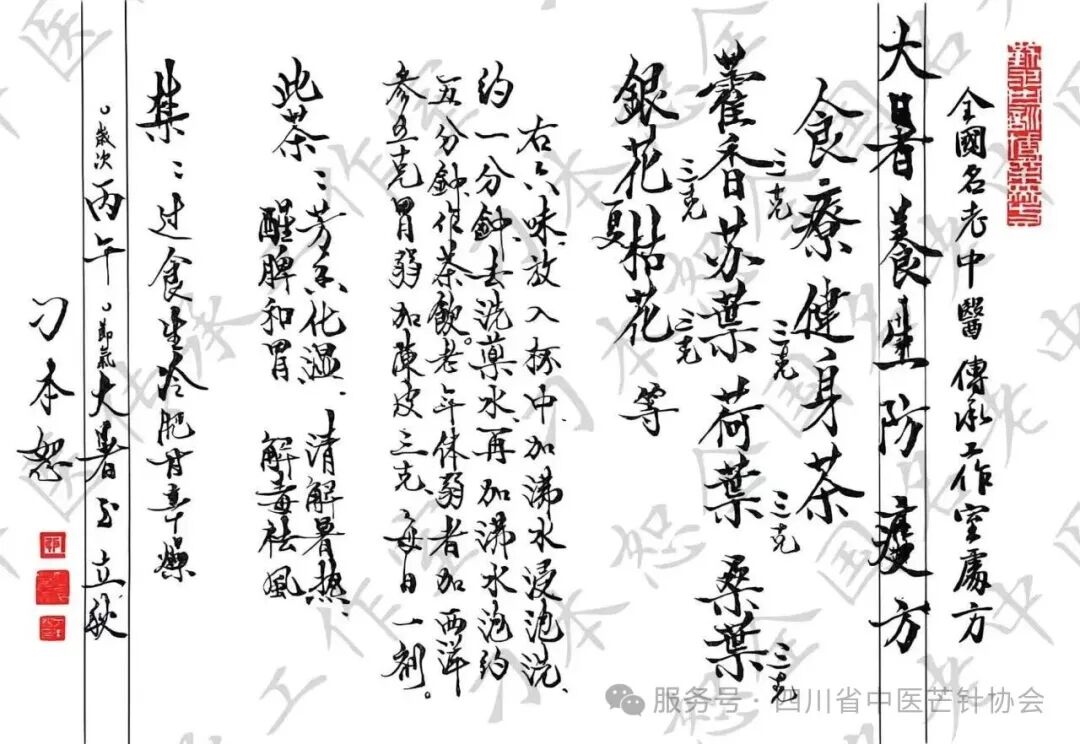 全國名老中醫傳承工作室處方
大暑養生防疫方
食療健身茶
藿香三克苏葉三克荷葉三克桑葉三克
銀花三克夏枯花三克等
右六味、放入杯中、加沸水浸泡洗、
约一分鈡、去洗藥水、再加沸水泡约
五分鈡、作茶飲。老年体弱者加西洋
参五克、胃弱加陳皮三克、每日一剂。
此茶：芳香化湿、清解暑热、
醒脾和胃、解毒祛風
禁：过食生冷肥甘辛燥
歲次丙午節氣大暑至立秋
刁本恕
服务号·四川省中医芒针协会